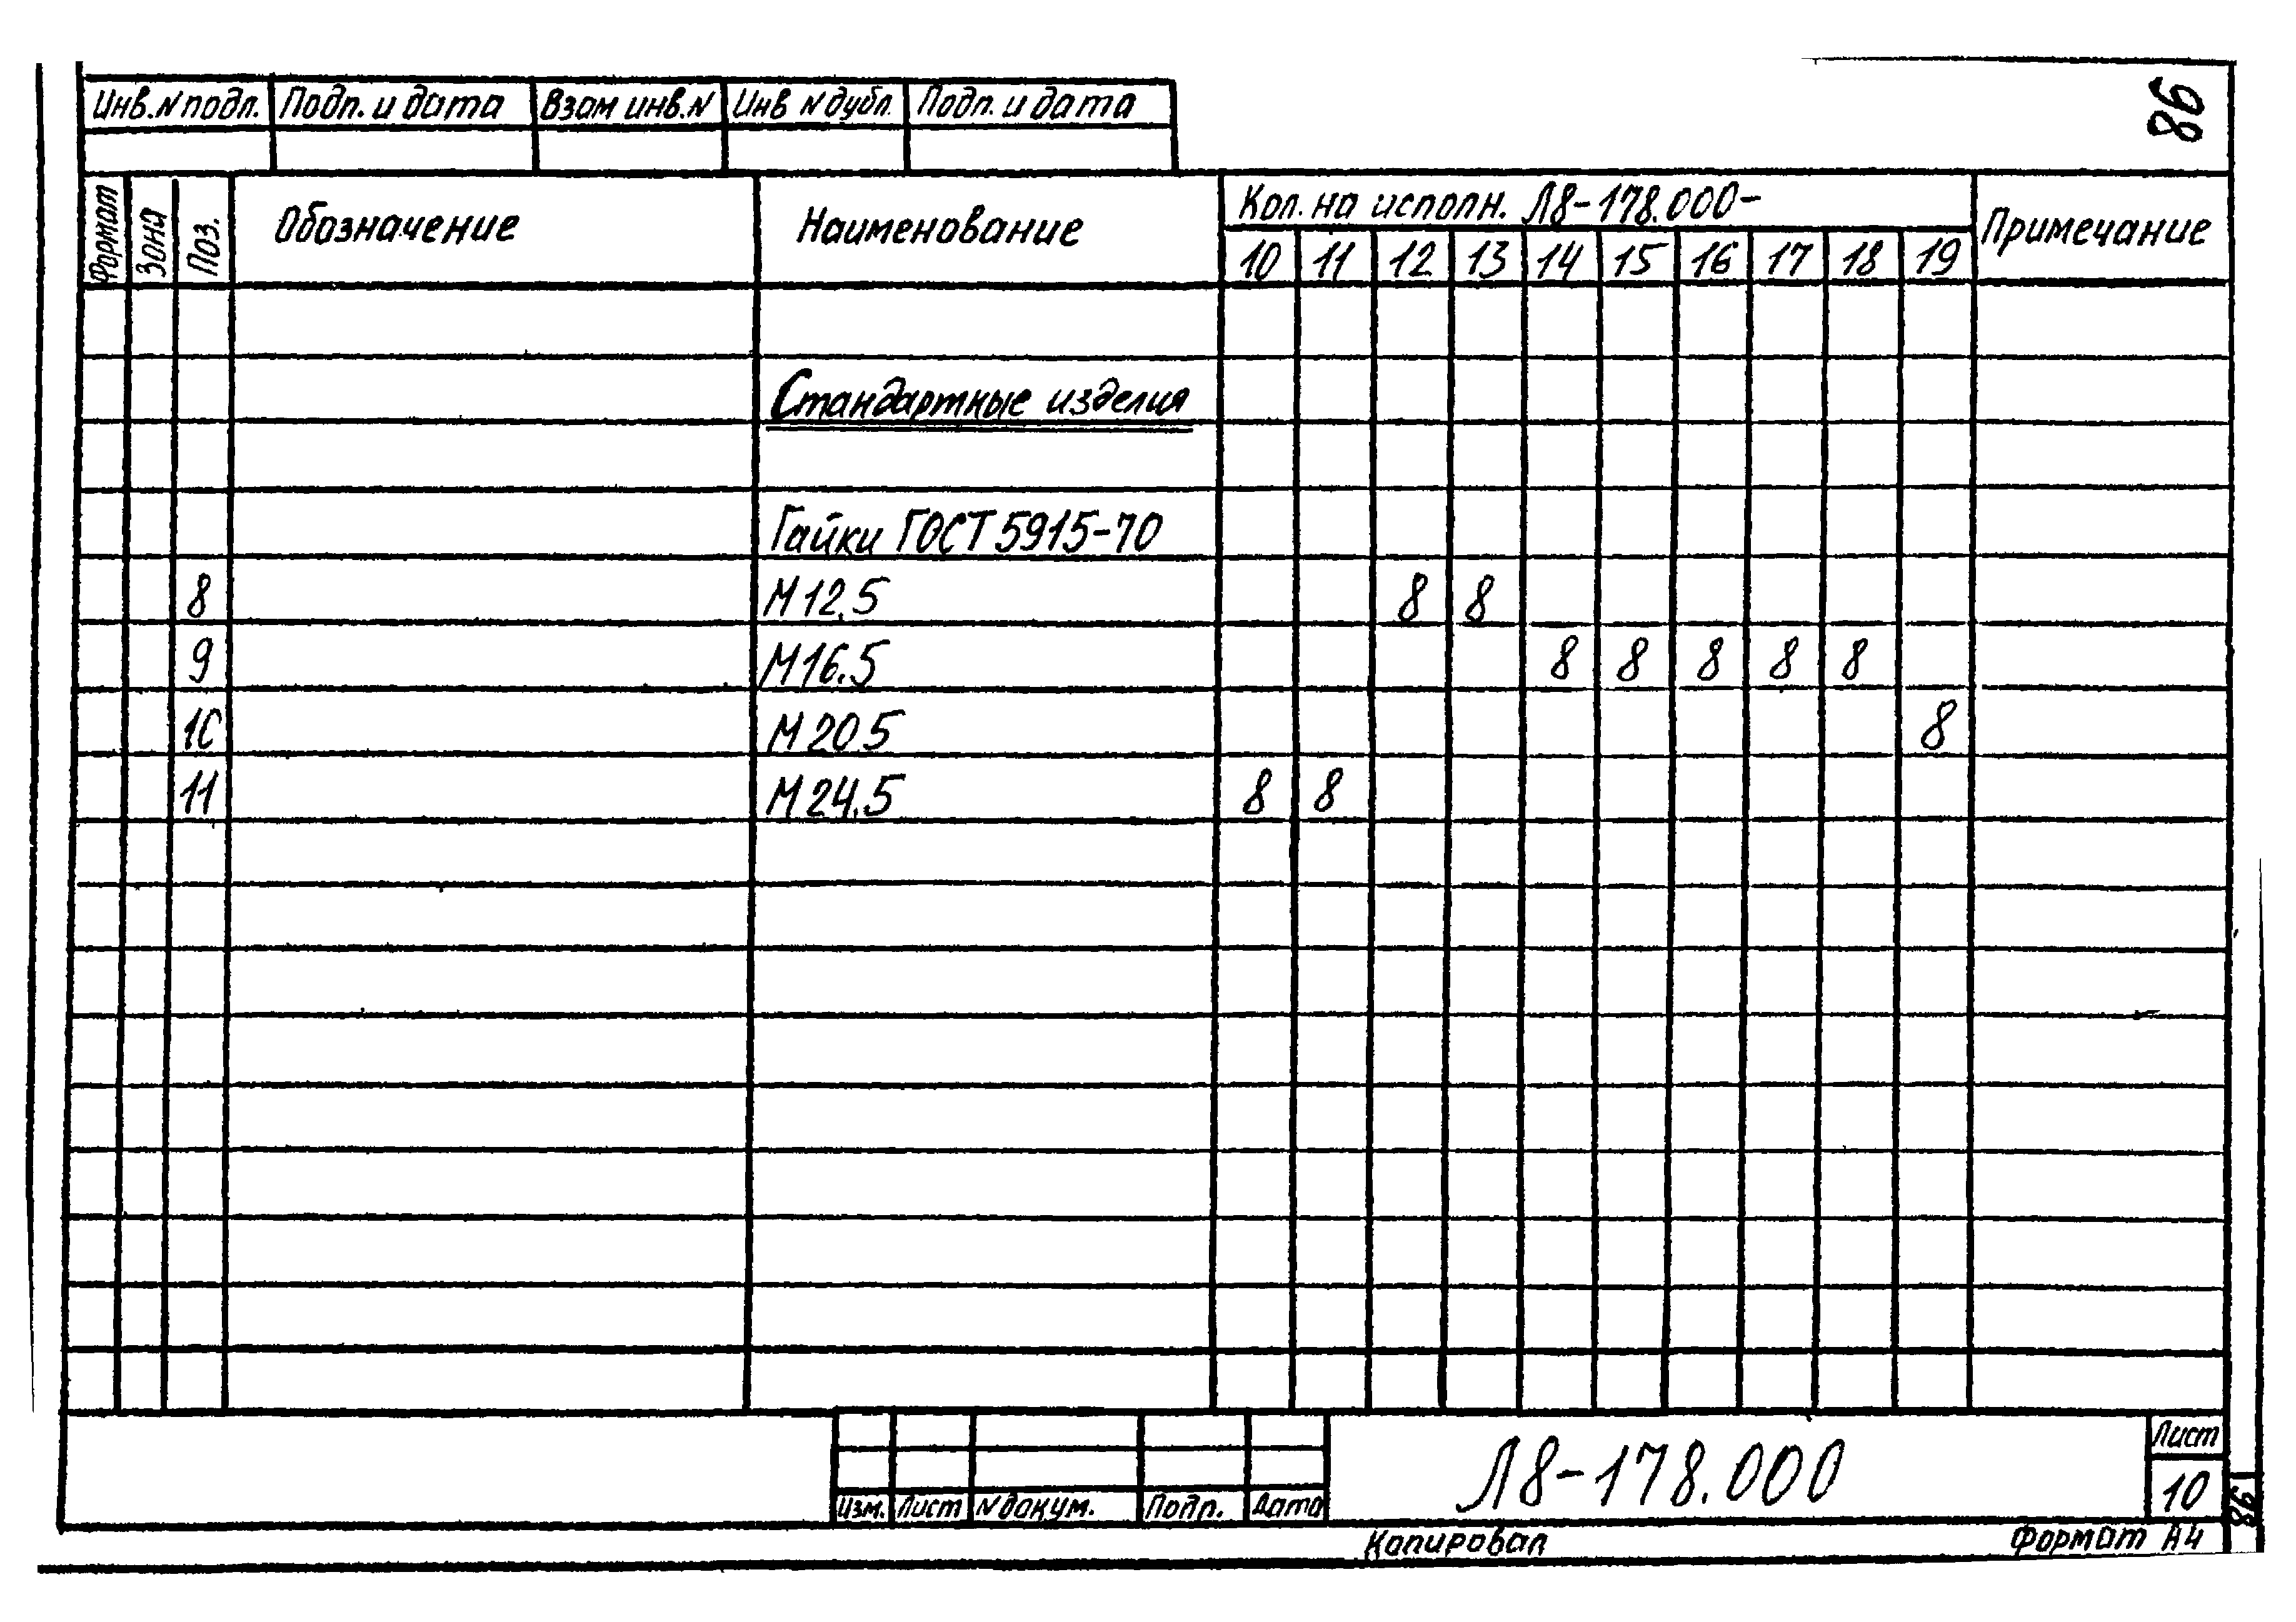 86
Инв.N подл. Подп. и дата Взам инв.N Инв N дубл. Подп. и дата
Формат Зона Поз. Обозначение Наименование Кол. на исполн. Л8-178.000- Примечание
10 11 12 13 14 15 16 17 18 19
Стандартные изделия
Гайки ГОСТ 5915-70
8 М12.5 8 8
9 М16.5 8 8 8 8 8
10 М20 5 8
11 М24.5 8 8
Изм. Лист N докум. Подр. Дата Л8-178.000 Лист
10
86
Копировал Формат А4